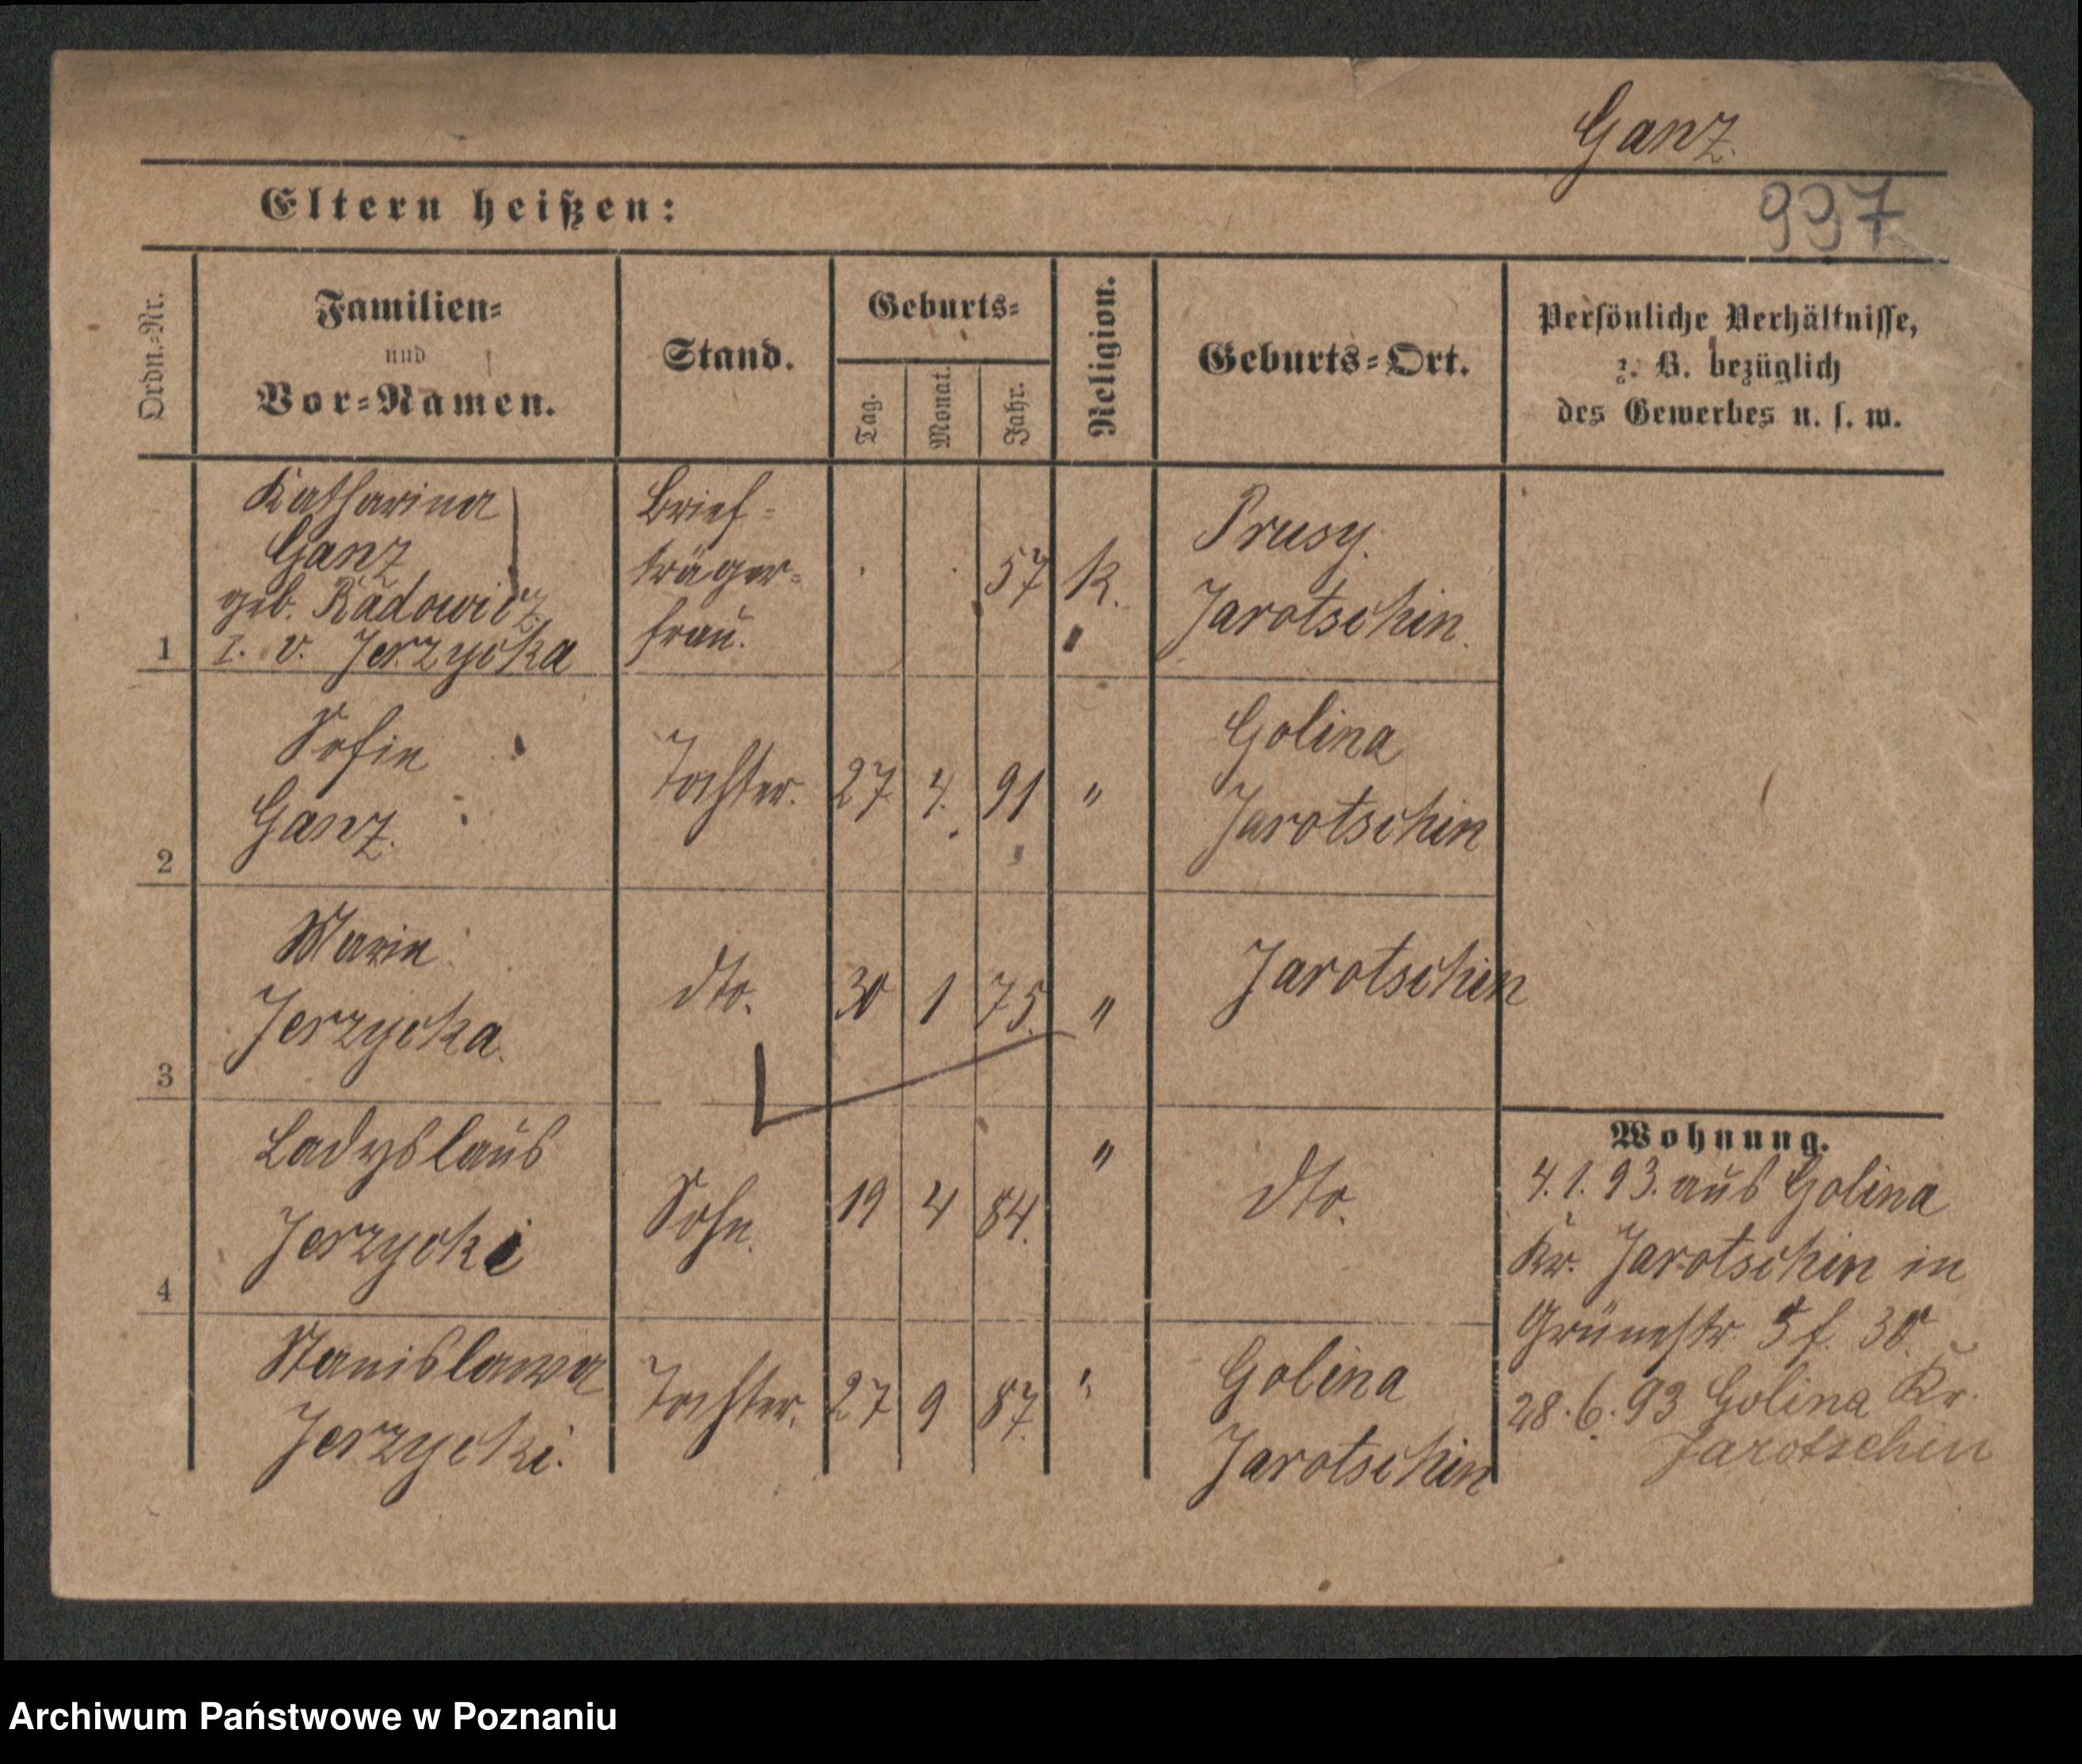 Ganz.
997
Eltern heißen:
Ordn.-Nr.
Familien-
und
Vor-Namen.
Stand.
Geburts-
Tag.
Monat.
Jahr.
Religion.
Geburts-Ort.
Persönliche Verhältnisse,
z. B. bezüglich
des Gewerbes u. s. w.
1
Katharina
Ganz
geb. Radowicz
I. v. Jerzycka
Brief-
träger-
frau.
57
K.
Prusy.
Jarotschin.
2
Sofie
Ganz.
Tochter.
27 4. 91 "
Golina
Jarotschin
3
Marie
Jerzycka.
dto.
30 1 75. "
Jarotschin
4
Ladyslaus
Jerzycki
Sohn.
19 4 84. "
dto.
Stanislawa
Jerzycki.
Tochter.
27 9 87. "
Golina
Jarotschin
Wohnung.
4. 1. 93. aus Golina
Kr. Jarotschin in
Grünestr. 5 f. 30.
28. 6. 93 Golina Kr.
Jarotschin
Archiwum Państwowe w Poznaniu